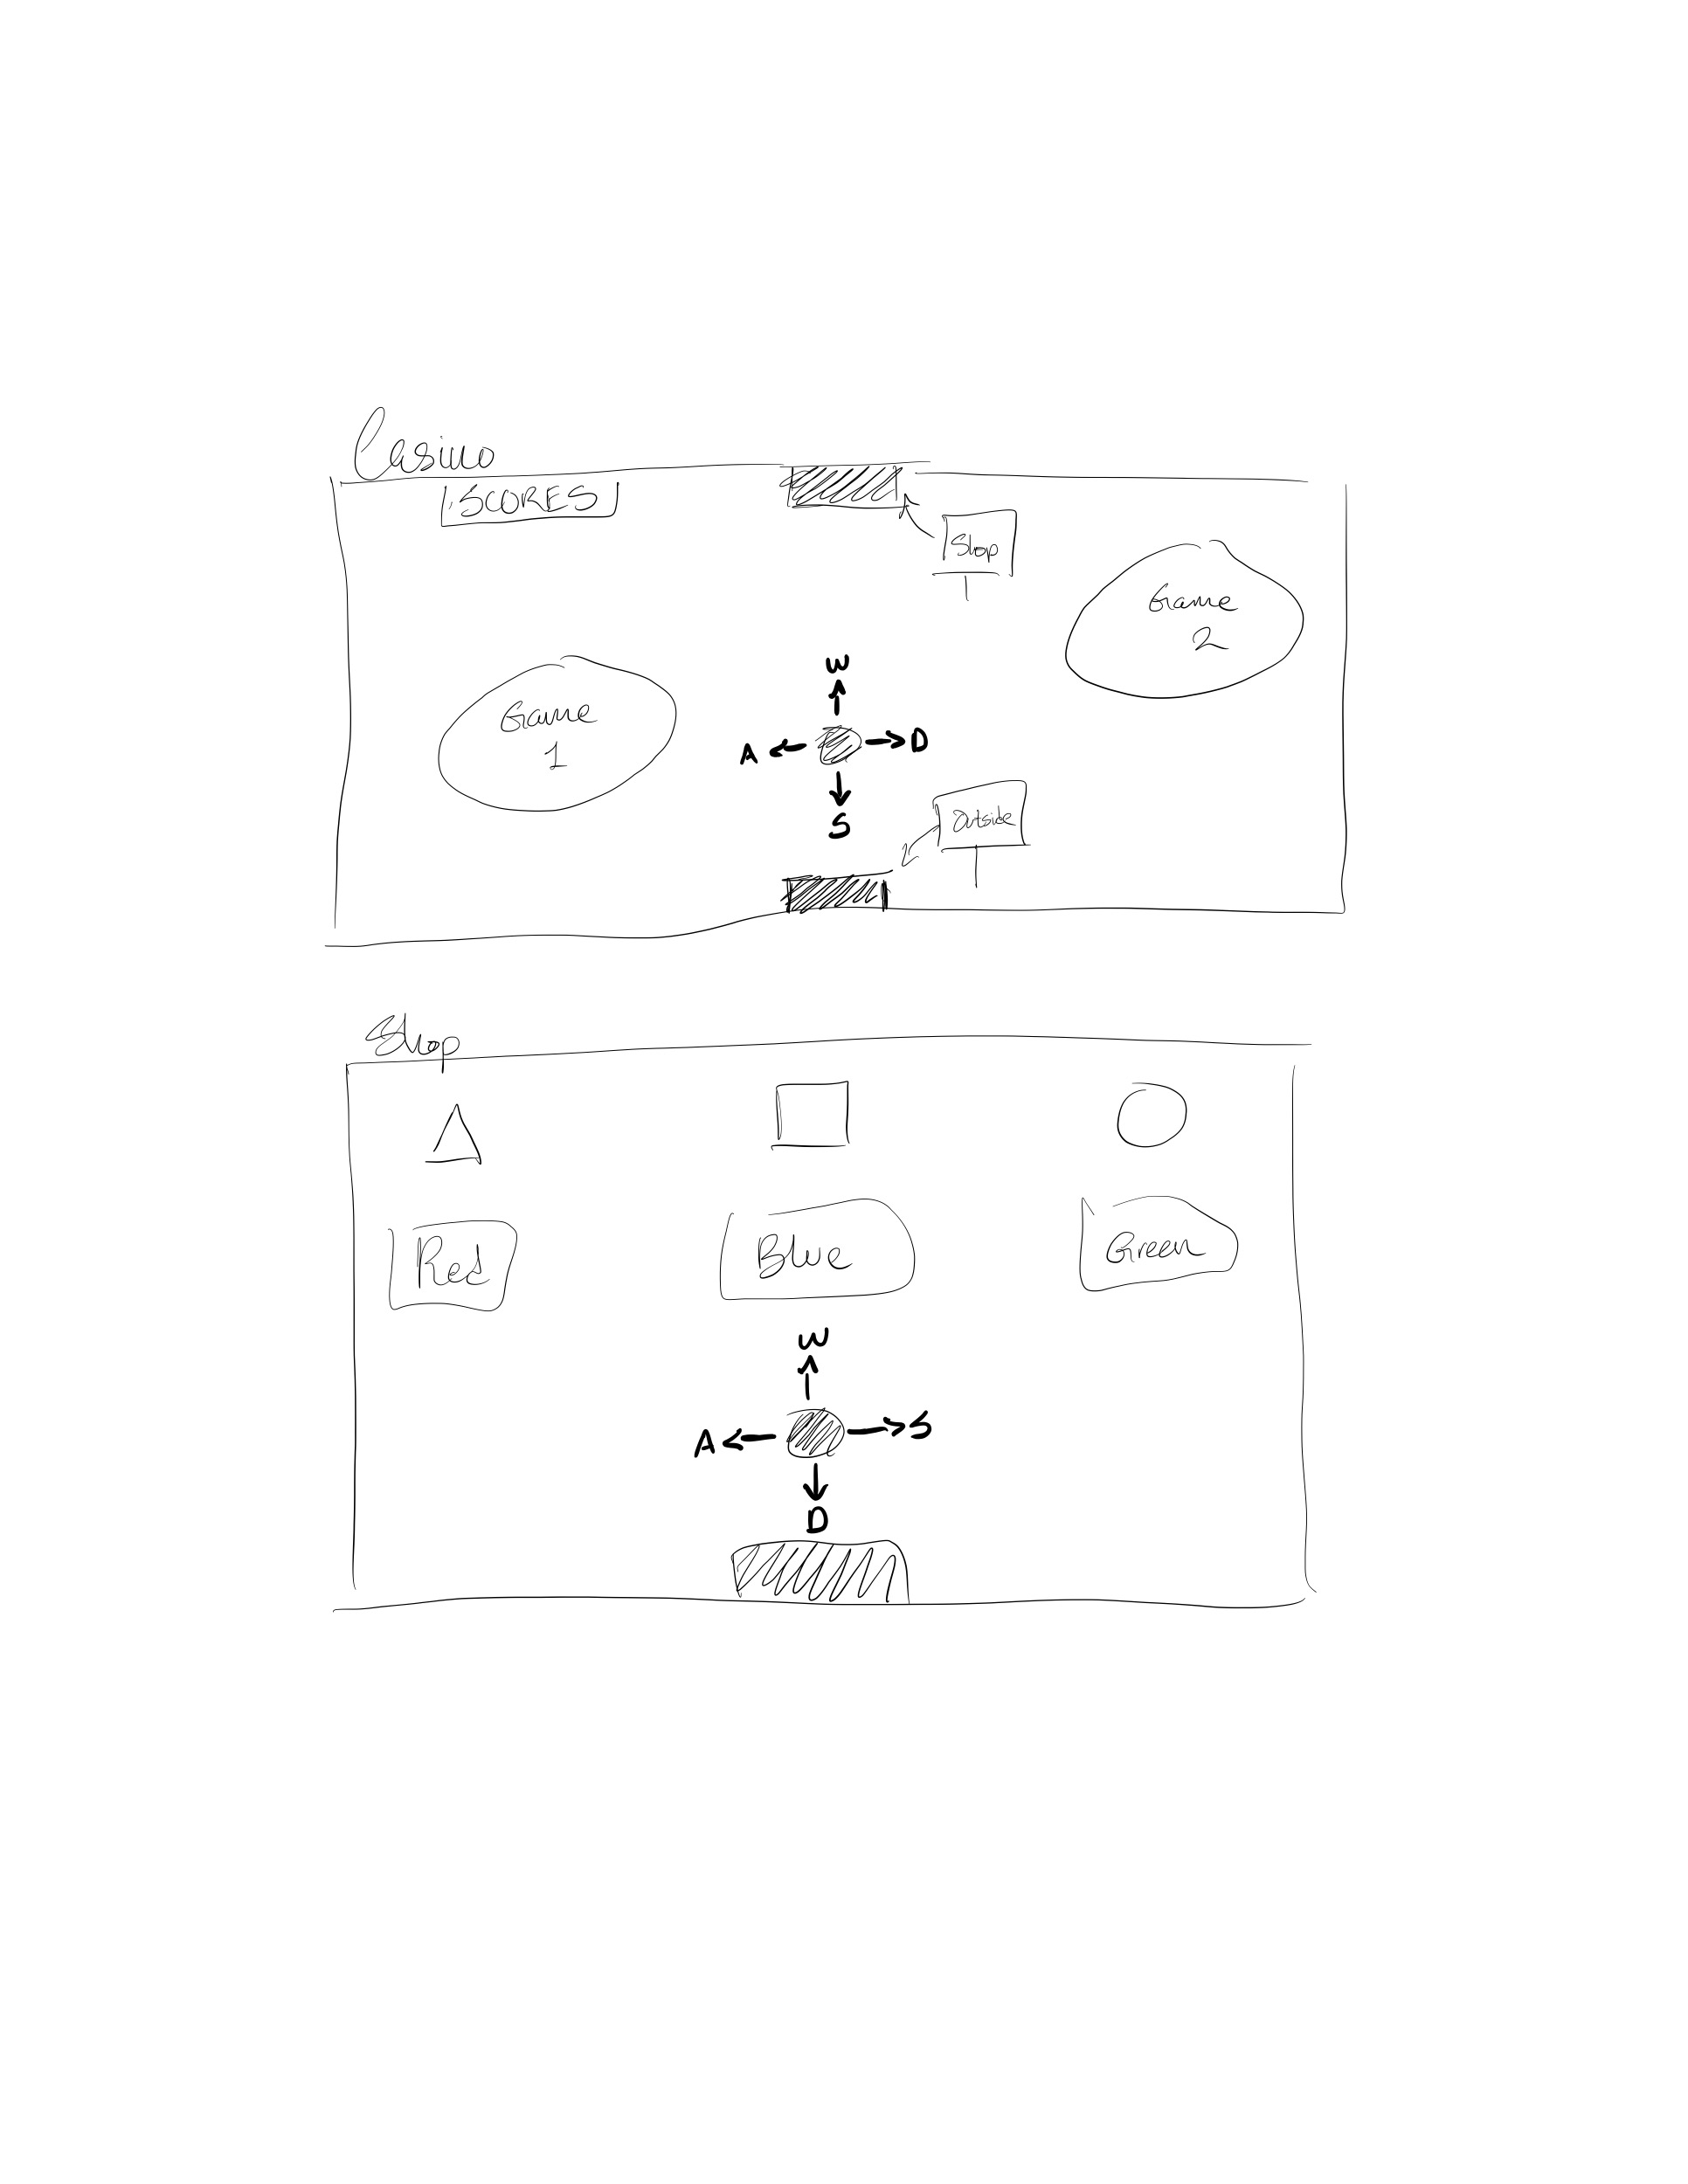 Casino
SCORES
Shop
Game
2
W
Game
1
A
D
S
Outside
Shop
Red
Blue
Green
W
A
S
D